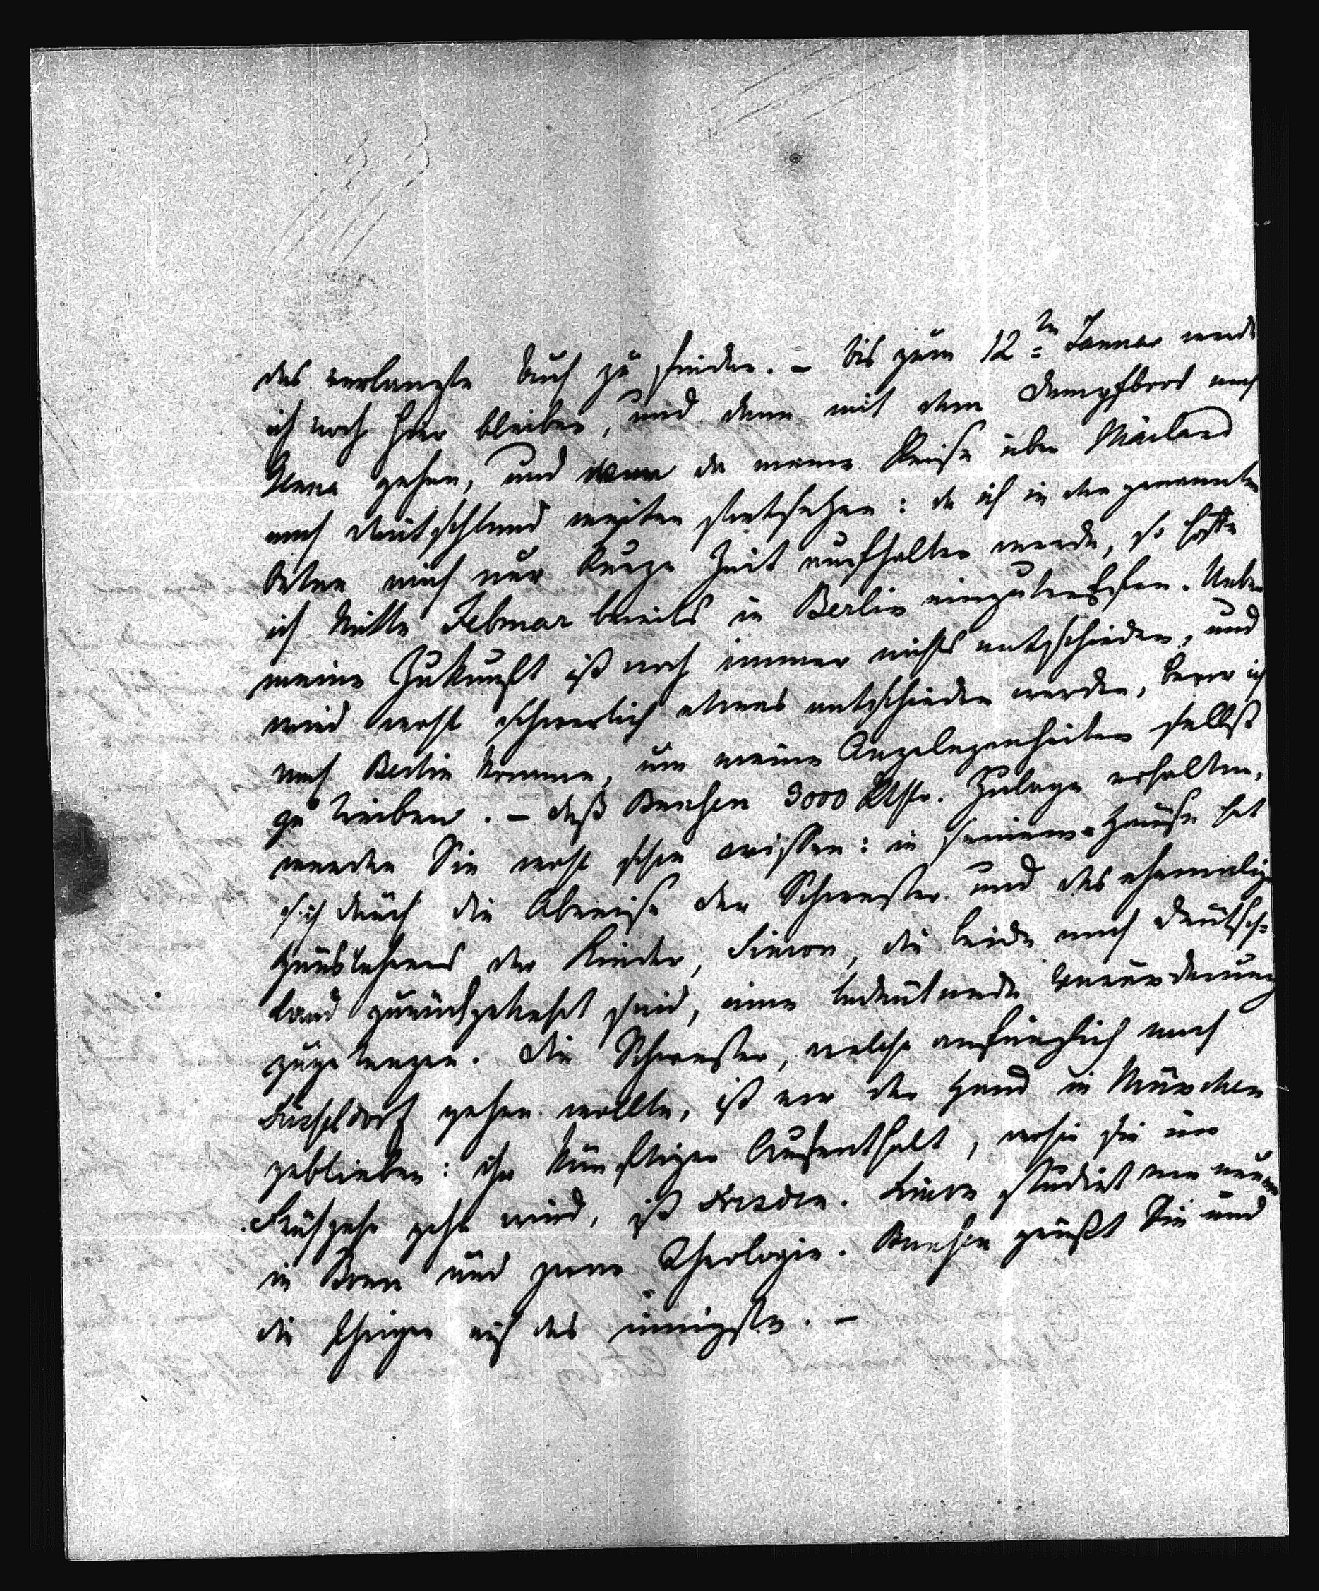 das verlangte Buch zu finden. – Bis zum 12ten Januar werde
ich noch hier bleiben, und dann mit dem Dampfboot nach
gehen, und dann da meine Reise über Mailand
nach Deutschland weiter fortsetzen: da ich in den genannten
Orten mich nur kurze Zeit aufhalten werde, so hoffe
ich Mitte Februar bereits in Berlin einzutreffen. Ueber
meine Zukunft ist noch immer nichts entschieden, und
wird wohl schwerlich etwas entschieden werden, bevor ich
nach Berlin komme, um meine Angelegenheiten selbst
zu treiben. – Daß Bunsen 3000 Rthlr. Zulage erhalten,
werden Sie wohl schon wissen: in seinem Hause hat
sich durch die Abreise der Schwester und des ehemaligen
Hauslehrers der Kinder, Simon, die beide nach Deutsch-
land zurückgekehrt sind, eine bedeutende Veränderung
zugetragen. Die Schwester, welche anfänglich nach
Düsseldorf gehen wollte, ist vor der Hand in München
geblieben: ihr künftiger Aufenthalt, wohin sie im
Frühjahr gehn wird, ist Dresden. Simon studirt von neuem
in Bonn und zwar Theologie. Bunsen grüßt Sie und
die Ihrigen auf das innigste. –